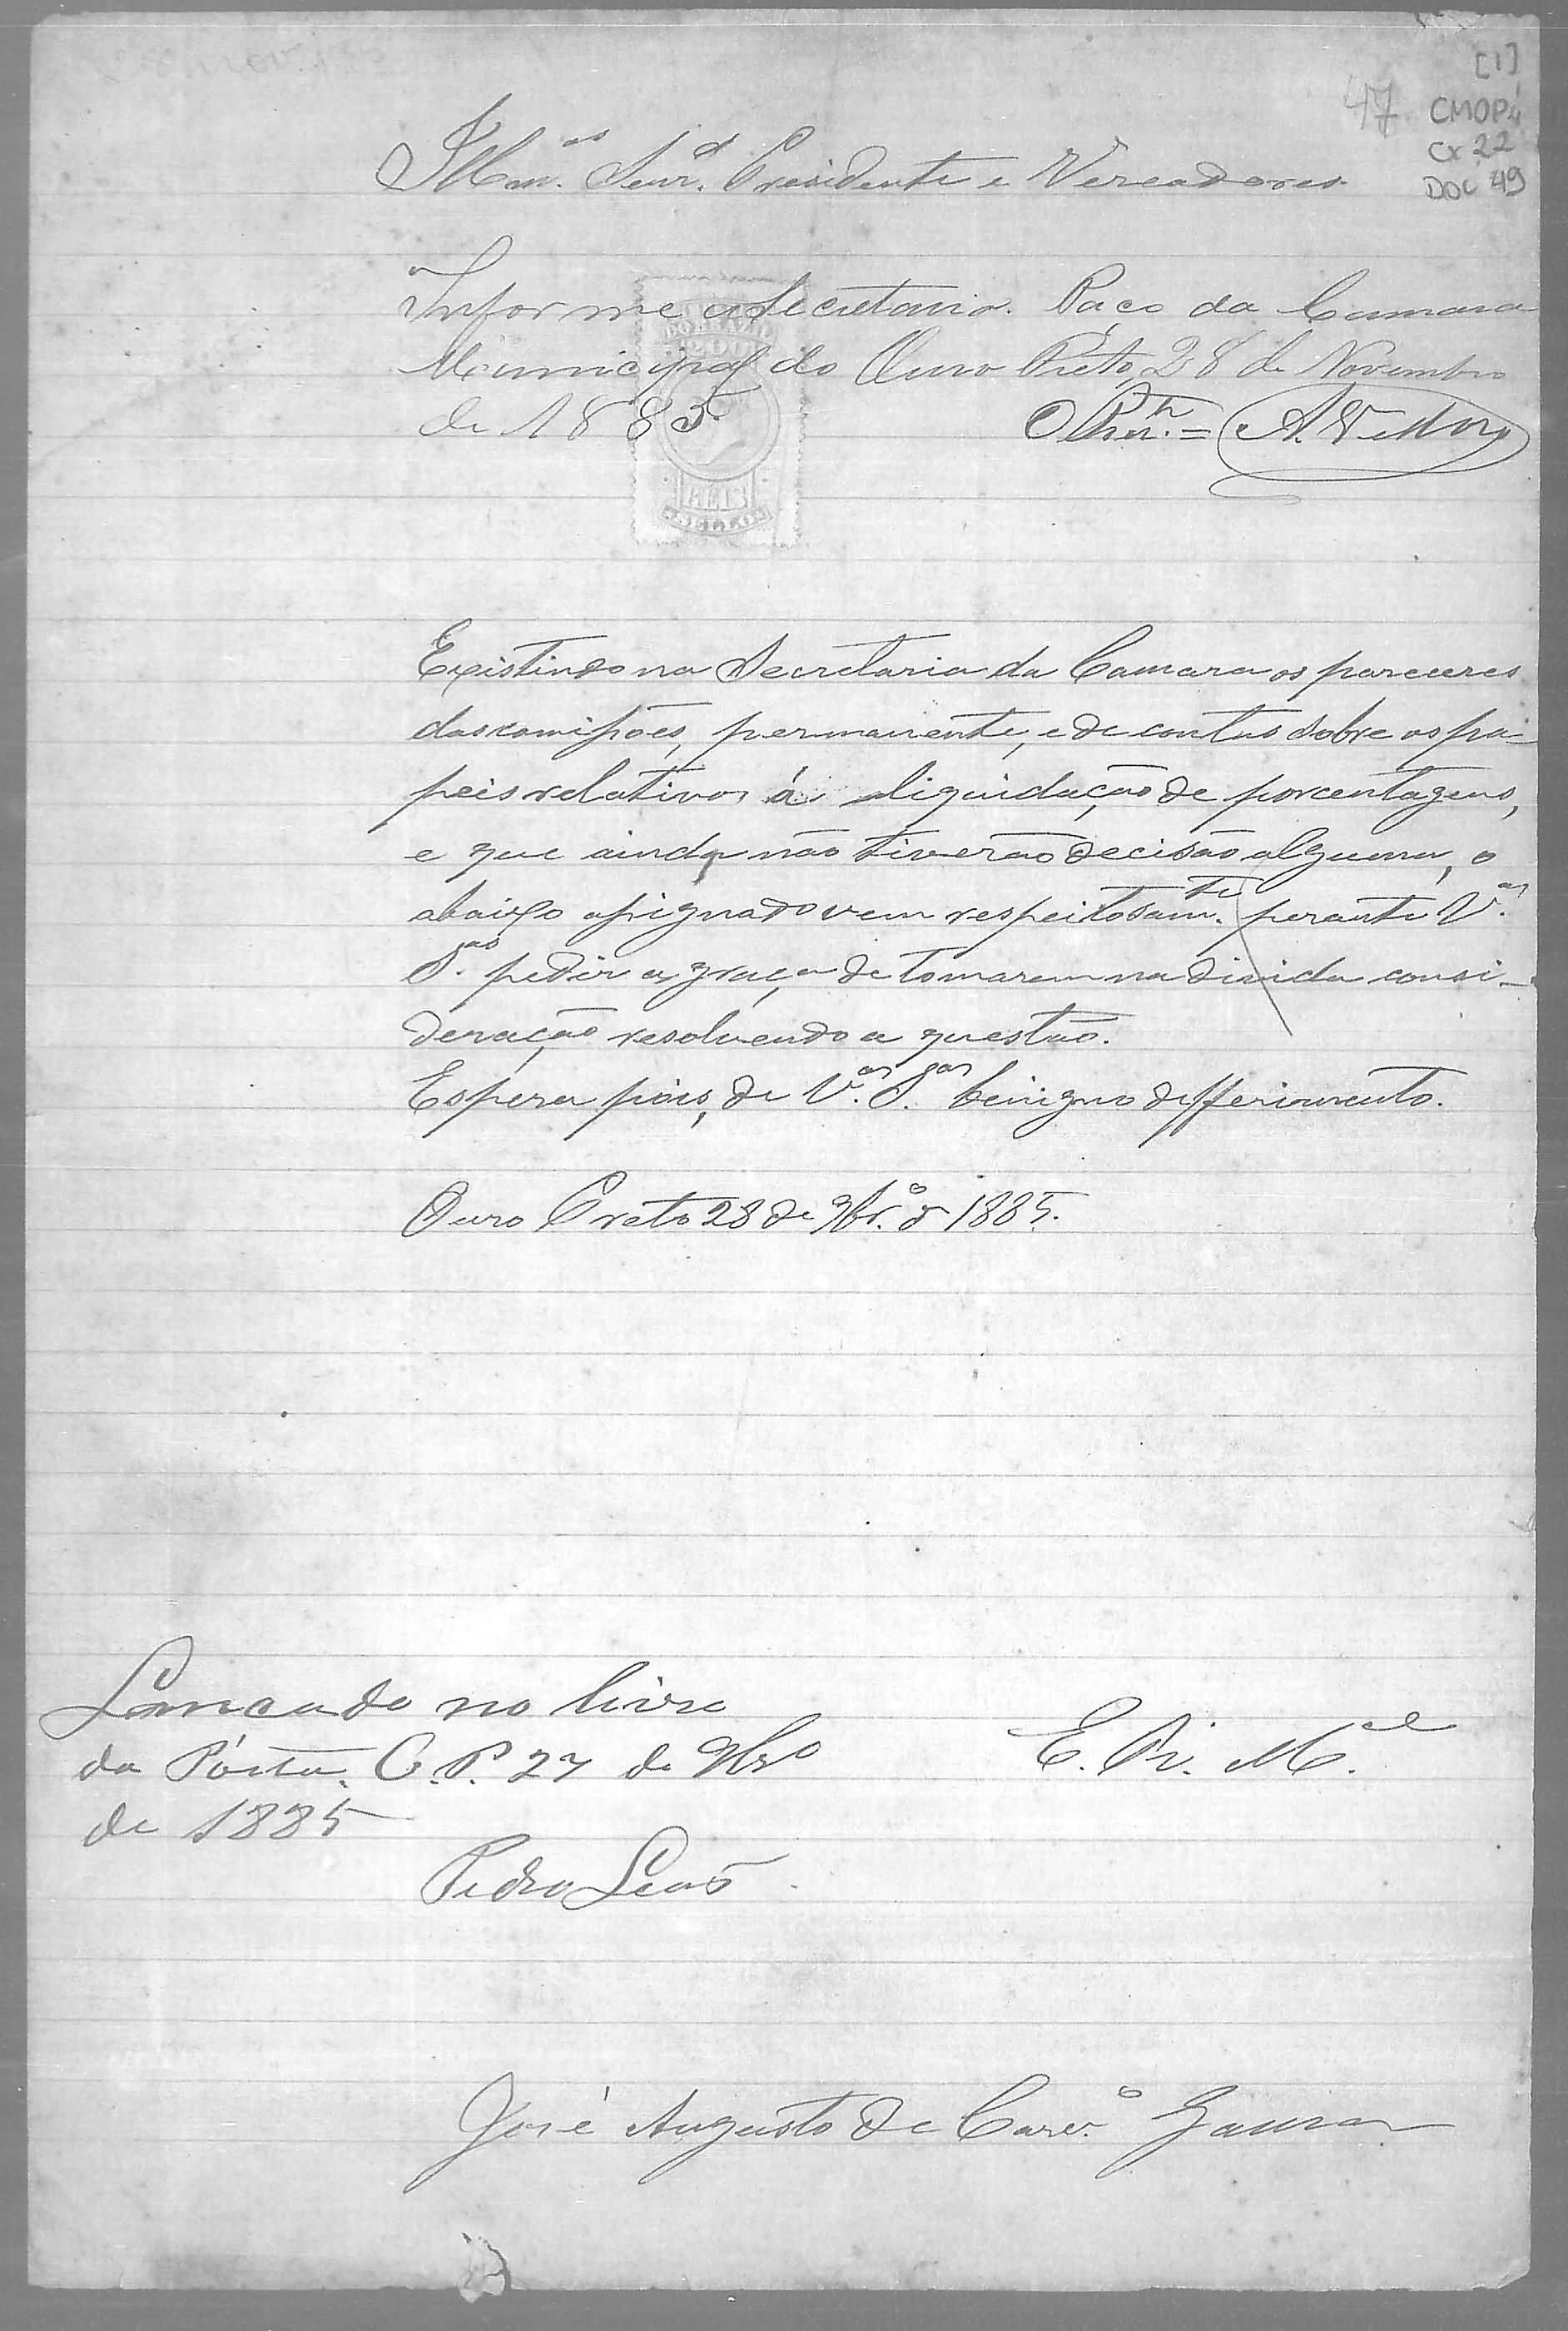 [1]
47 CMOP
Cx 22
DOC 49
Illm.os Senr.es Presidente e Vereadores.
Informe a Secretaria. Paço da Camara
Municipal do Ouro Preto, 28 de Novembro
de 1885.
DO BRAZIL
200
REIS
SELLO
Existindo na Secretaria da Camara os pareceres
das comissões, permanente, e de contas sobre os pa-
peis relativos á liquidação de porcentagens,
e que ainda não tiverão decisão alguma, o
abaixo assignado vem respeitosam.te perante V.as
S.as pedir a graça de tomarem na divida consi-
deração resolvendo a questão.
Espera pois, de V.as S.as benigno defferimento.
Ouro Preto 28 de 9br.o de 1885.
Lancado no livro
da Pórta. O.P. 27 de 9br.o
de 1885
Pedro Leão
E. R. M.ce
José Augusto de Carv.o Gama